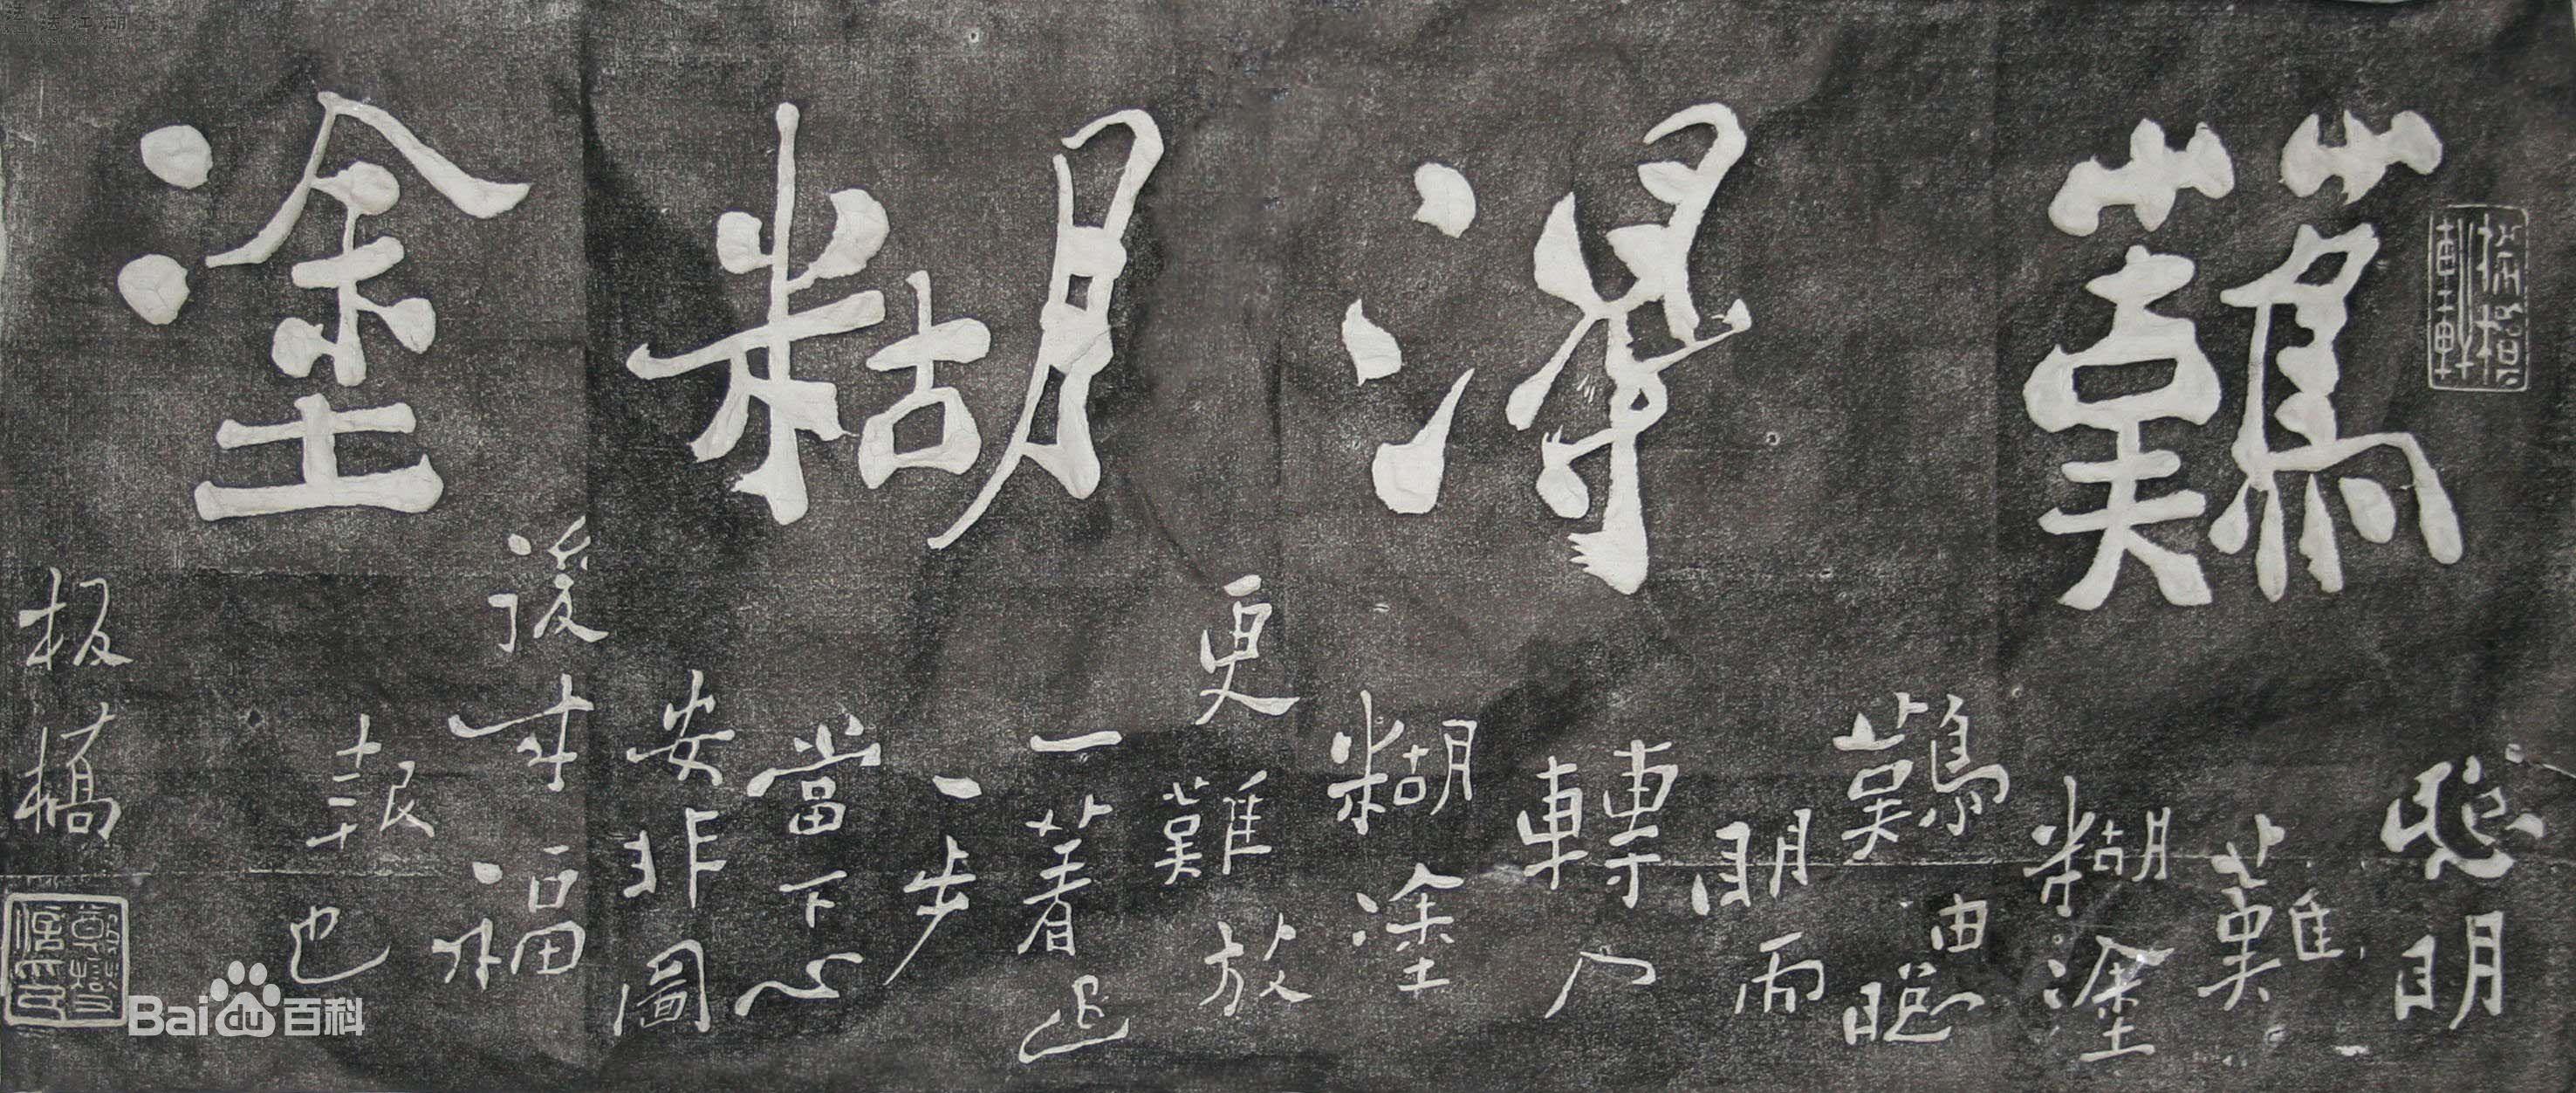 難得糊塗
聰明
難
糊塗
難由聰
明而
轉入
糊塗
更難放
一着退
一步
當下心
安非圖
後來福
報也
板橋
Bai百科